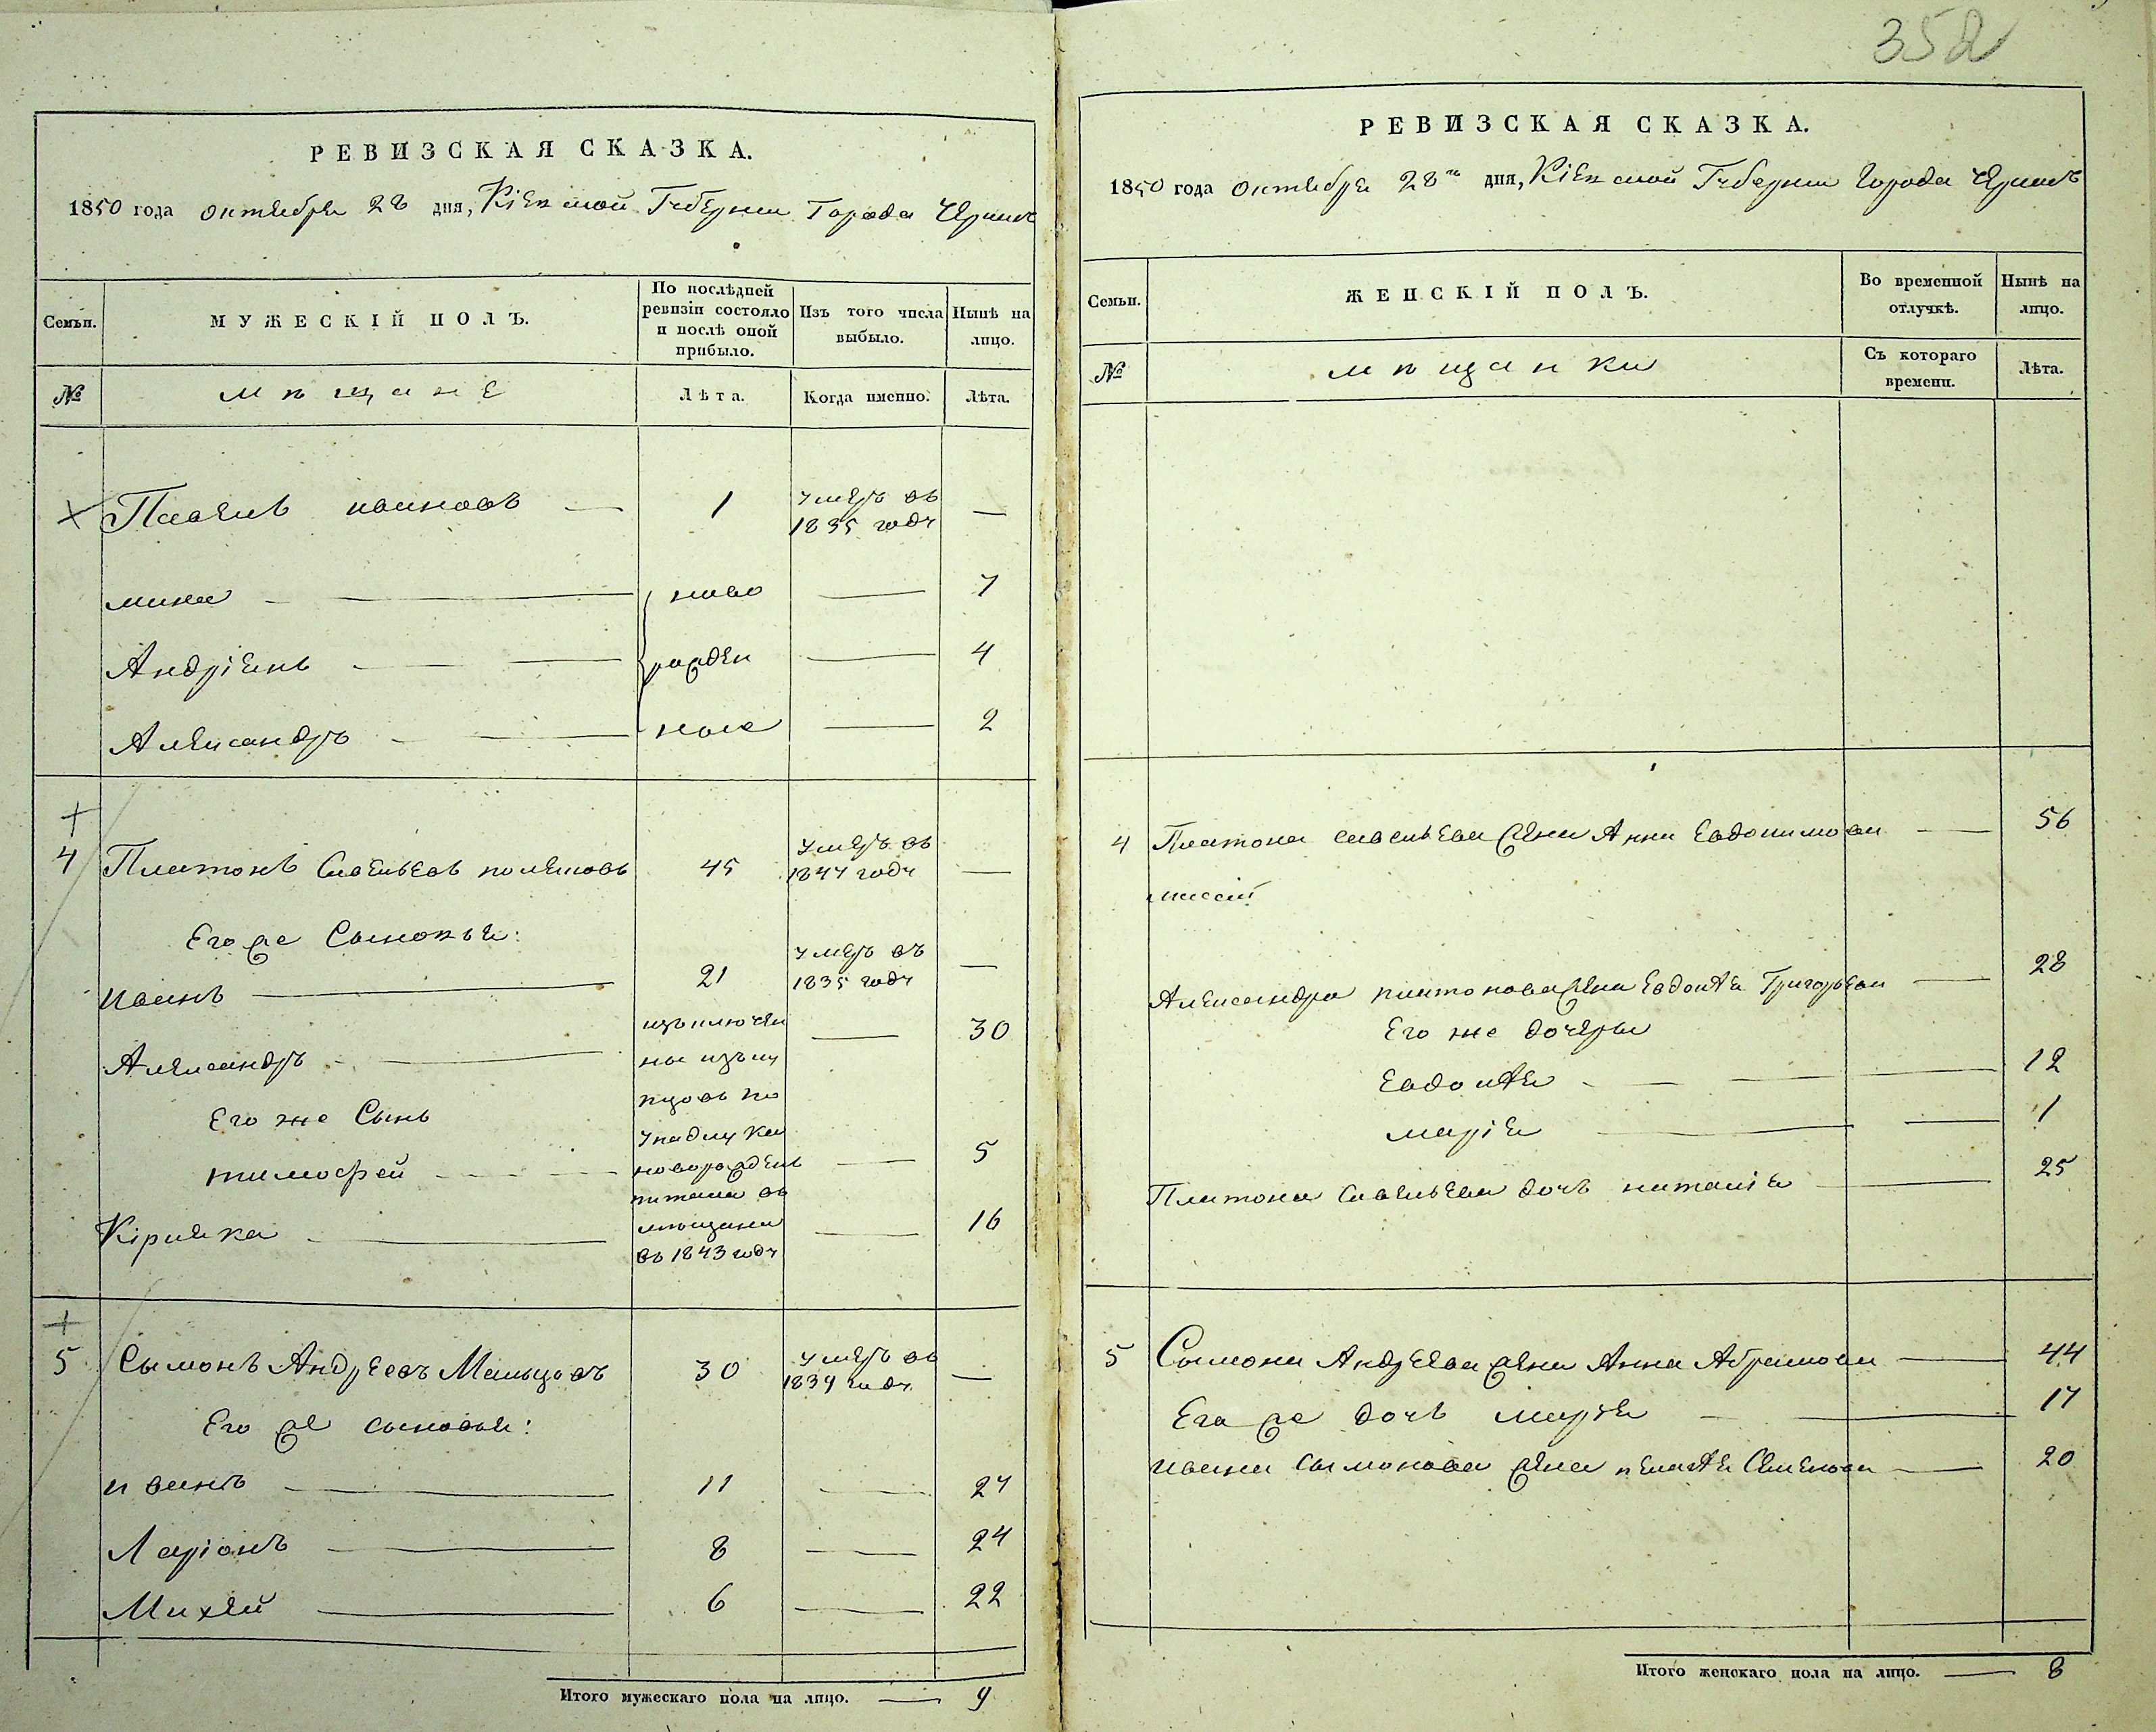 352
РЕВИЗСКАЯ СКАЗКА.
1850 года октября 28 дня, Кіевской Губерніи Города Черкас
Семьи. МУЖЕСКІЙ ПОЛЪ. По послѣдней ревизіи состояло и послѣ оной прибыло. Изъ того числа выбыло. Нынѣ на лицо.
№ мѣщане Лѣта. Когда именно. Лѣта.
Павелъ ивановъ — 1 умеръ въ 1835 году —
мина — ново — 7
Андріянъ — рожден — 4
Александръ — ные — 2
4 Платонъ Савельевъ 45 умеръ въ 1847 году —
Его же Сыновья:
иванъ — 21 умеръ въ 1835 году —
Александръ — — 30
Его же Сынъ
тимофей — новорожденъ — 5
Кірилка — въ 1843 году — 16
5 Сымонъ Андреевъ Мальцовъ 30 умеръ въ 1839 году —
Его же сыновья:
иванъ — 11 — 27
Ларіонъ — 8 — 24
Михей — 6 — 22
Итого мужескаго пола на лицо. — 9
РЕВИЗСКАЯ СКАЗКА.
1850 года октября 28 дня, Кіевской Губерніи Города Черкасъ
Семьи. ЖЕНСКІЙ ПОЛЪ. Во временной отлучкѣ. Нынѣ на лицо.
№ мѣщанки Съ котораго времени. Лѣта.
4 Платона савельева жена Анна Евдокимова — 56
Александра платонова жена Евдокія Григорьева — 28
Его же дочеры
Евдокія — 12
марія — 1
Платона Савельева дочь наталія — 25
5 Сымона Андреева жена Анна Абрамова — 44
Его же дочь марія — 17
ивана сымонова жена пелагія Семенова — 20
Итого женскаго пола на лицо. — 8